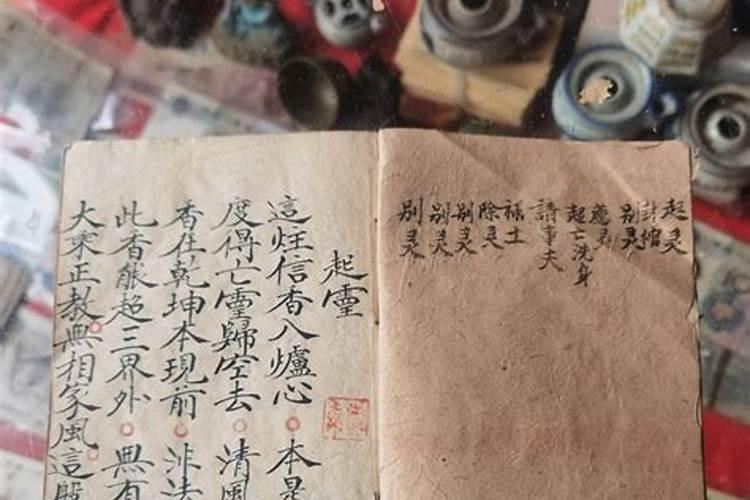 起灵
封棺
别灵
起亡洗身
請事夫
福土
除灵
别灵
别灵
别灵
起靈
這炷信香入爐心 本是
度得亡靈歸空去 清風
香在乾坤本現前 非法
此香能超三界外 無有
大乘正教無相家風這般